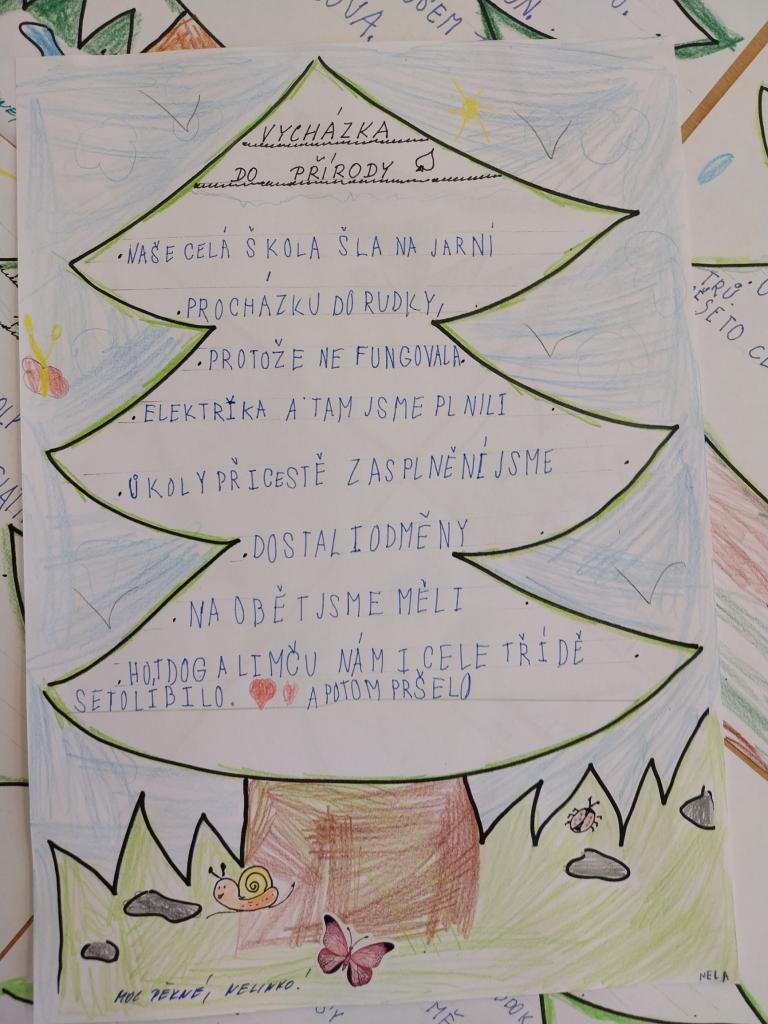 VYCHÁZKA
DO PŘÍRODY
NAŠE CELÁ ŠKOLA ŠLA NA JARNÍ
PROCHÁZKU DO RUDKY,
PROTOŽE NE FUNGOVALA
ELEKTRIKA A TAM JSME PLNILI
ÚKOLY PŘI CESTĚ ZA SPLNĚNÍ JSME
DOSTALI ODMĚNY
NA OBĚT JSME MĚLI
HOTDOG A LIMČU NÁM I CELE TŘÍDĚ
SE TO LÍBILO. A POTOM PRŠELO
MOC PĚKNÉ, NELINKO!
NELA